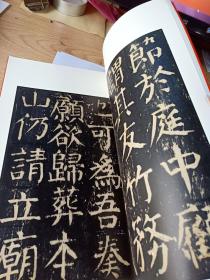 節於庭中顧
謂其友竹務
可為吾秦
願欲歸葬本
山仍請立廟